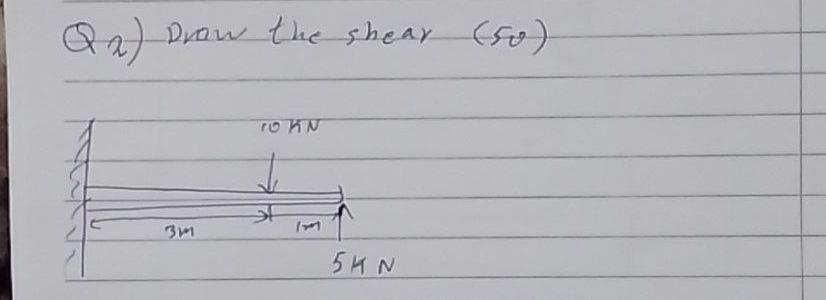 Q2) Draw the shear (50)
10 KN
3m 1m
5KN